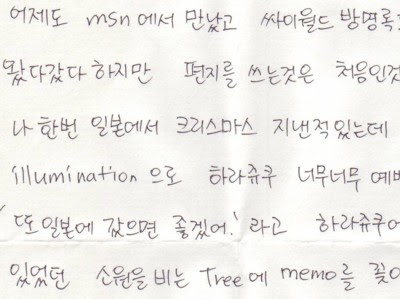 어제도 msn에서 만났고 싸이월드 방명록
왔다갔다 하지만 편지를 쓰는것은 처음인것
나 한번 일본에서 크리스마스 지낸적있는데
illumination으로 하라쥬쿠 너무너무 예뻐
'또 일본에 갔으면 좋겠어.' 라고 하라쥬쿠에
있었던 소원을 비는 Tree에 memo를 꽂